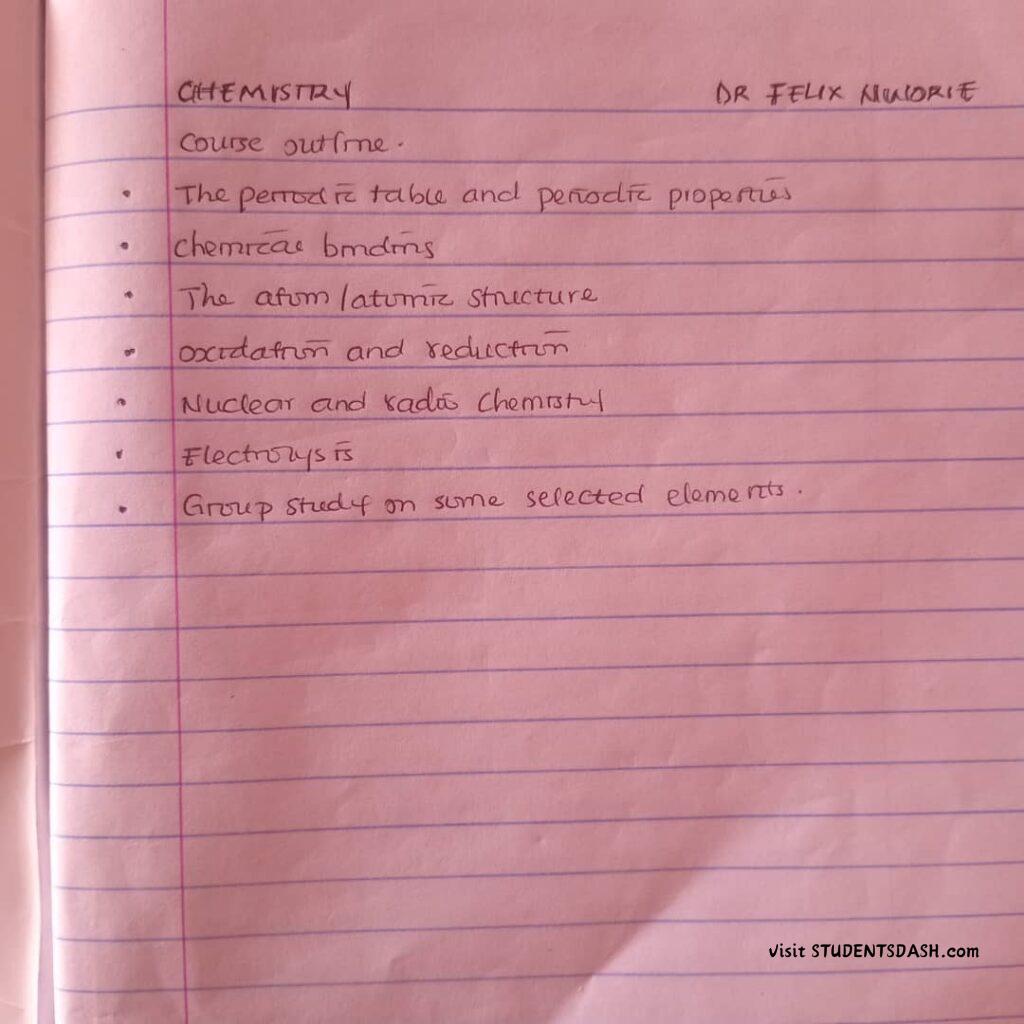 CHEMISTRY DR FELIX
Course outline.
• The periodic table and periodic properties
• Chemical bonding
• The atom/atomic structure
• oxidation and reduction
• Nuclear and radio chemistry
• Electrolysis
• Group study on some selected elements.
visit STUDENTSDASH.com